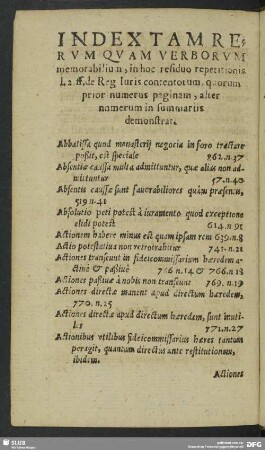 INDEX TAM RE-
RVM QVAM VERBORVM
memorabiliũ, in hoc residuo repetitionis
l. 2. ff. de Reg. Iuris contentorum, quorum
prior numerus paginam, alter
numerum in summariis
demonstrat.
Abbatissa quod monasterij negocia in foro tractare
possit, est speciale 862. n. 37
Absentiæ caussa multa admittuntur, quæ aliàs non ad-
mittuntur 57. n. 40
Absentis caussæ sunt fauorabiliores quàm præsentis,
519 n. 41
Absolutio peti potest à iuramento quod exceptione
elidi potest 614. n. 91
Actionem habere minus est quam ipsam rem 639. n. 8
Actio potestatiua non retrotrahitur 741. n. 21
Actiones transeunt in fideicommissarium hæredem a-
ctiuè & passiuè 766 n. 14 & 766. n. 18
Actiones passiuæ à nobis non transeunt 769. n. 19
Actiones directæ manent apud directum hæredem,
770. n. 25
Actiones directæ apud directum hæredem, sunt inuti-
les 771. n. 27
Actionibus vtilibus fideicommissarius hæres tantum
peragit, quantum directus ante restitutionem,
ibidem.
Actiones
SLUB